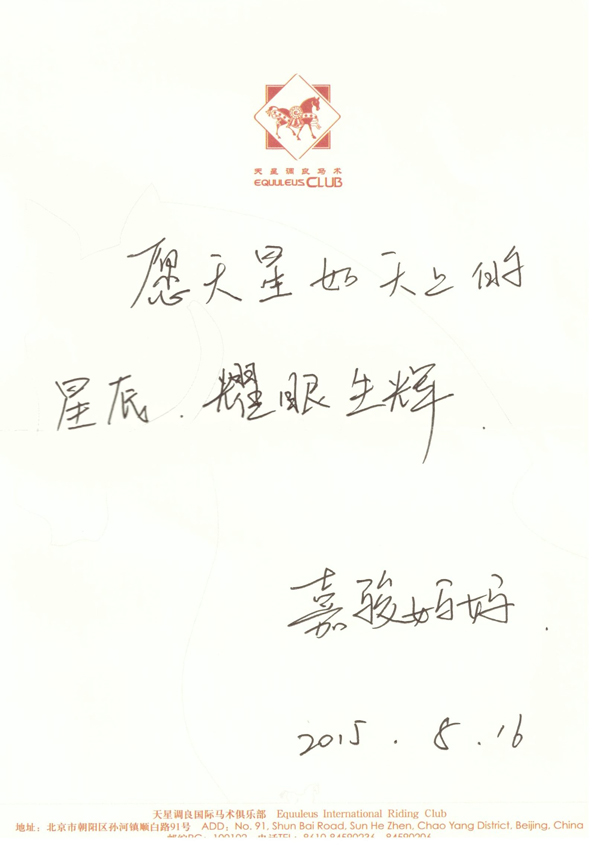 天星调良马术
EQUULEUS CLUB
愿天星如天上的
星辰.耀眼生辉.
嘉骏妈妈.
2015.8.16
天星调良国际马术俱乐部 Equuleus International Riding Club
地址：北京市朝阳区孙河镇顺白路91号 ADD: No. 91, Shun Bai Road, Sun He Zhen, Chao Yang District, Beijing, China